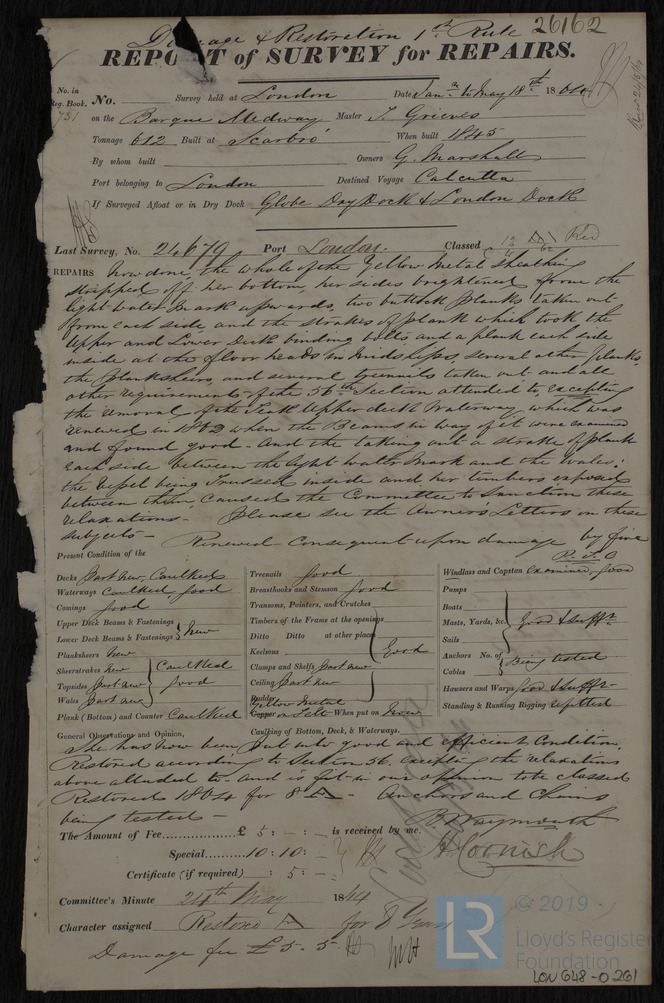 Damage & Restoration 1st Rule 26162
REPORT of SURVEY for REPAIRS.
No. in Reg. Book. No. Survey held at London Date Jan. to May 18th 1864
731 on the Barque Medway Master J. Grieves
Tonnage 612 Built at Scarbro' When built 1845
By whom built Owners G. Marshall
Port belonging to London Destined Voyage Calcutta
If Surveyed Afloat or in Dry Dock Globe Dry Dock & London Dock
Last Survey, No. 24679 Port London. Classed Red
REPAIRS now done, the whole of the Yellow Metal sheathing
stripped off her bottom, her sides brightened from the
light water mark upwards, two buttock planks taken out
from each side, and the strakes of plank which took the
Upper and Lower Deck binding bolts and a plank each side
inside at the floor heads in midships, several other planks,
the planksheers, and several treenails taken out and all
other requirements of the 56th Section attended to, excepting
the removal of the Teak Upper deck Waterway, which was
renewed in 1862 when the Beams in way of it were examined
and found good - And the taking out a strake of plank
each side between the light water mark and the wales:
the vessel being trussed inside and her timbers exposed
between them, caused the Committee to sanction these
relaxations - Please see the Owners Letters on these
subjects -
Renewed consequent upon damage by fire
P.T.O
Present Condition of the
Decks part new, Caulked
Waterways Caulked good
Comings good
Upper Deck Beams & Fastenings
Lower Deck Beams & Fastenings } New
Plansheers New
Sheerstrakes New
Topsides part new
Wales part new } Caulked good
Plank (Bottom) and Counter Caulked
Treenails good
Breasthooks and Stemson good
Transoms, Pointers, and Crutches
Timbers of the Frame at the openings
Ditto Ditto at other places
Keelsons
Clamps and Shelfs part new
Ceiling part new
Rudder } Good
Yellow Metal
Copper on Felt When put on Now
Caulking of Bottom, Deck, & Waterways.
Windlass and Capstan Examined, good
Pumps
Boats
Masts, Yards, &c.
Sails } good & sufft.
Anchors No. of
Cables } Being tested
Hawsers and Warps good & suffr
Standing & Running Rigging refitted
General Observations and Opinion,
She has now been put into good and efficient Condition,
Restored according to Section 56, excepting the relaxations
above alluded to - and is fit in our opinion to be classed
Restored 1864 for 8 A - Anchors and Chains
being tested -
B. Waymouth
The Amount of Fee £ 5 : - : - is received by me,
Cornish
Special 10 : 10 : -
Certificate (if required) : 5 : -
Committee's Minute 24th May 1864
Character assigned Restored A for 8 Years
Damage fee £5. 5.
© 2019
LR
Lloyd's Register
Foundation
LON 648-0261